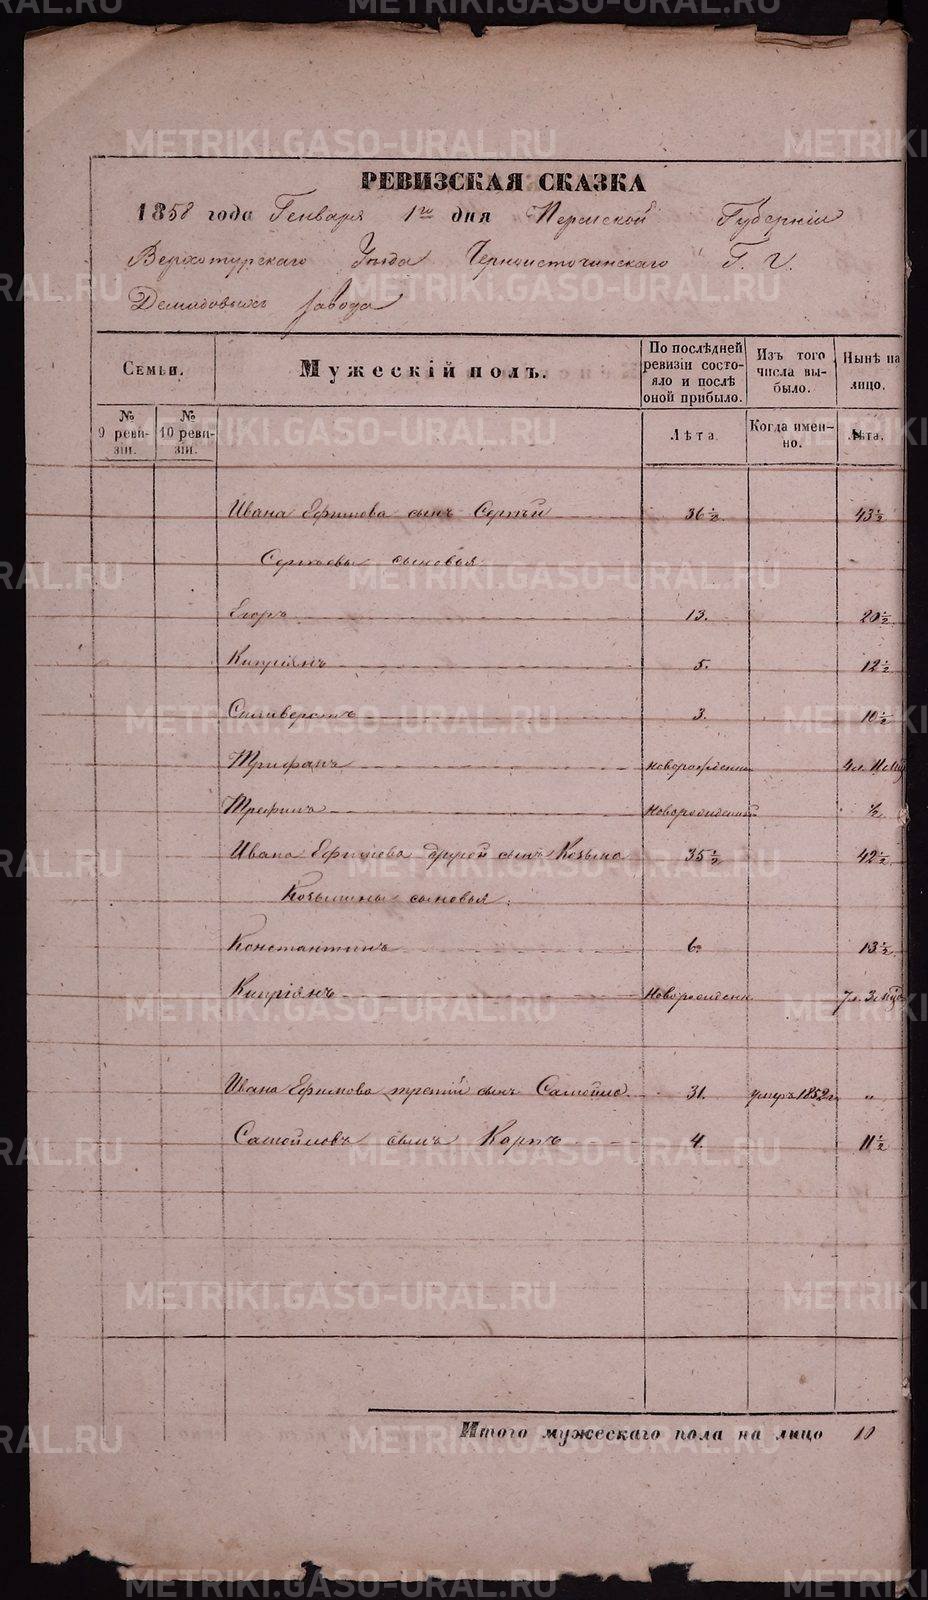 METRIKI.GASO-URAL.RU
РЕВИЗСКАЯ СКАЗКА
1858 года Генваря 1го дня Пермской Губерніи
Верхотурскаго Уезда Черноисточинскаго Г. Г.
Демидовыхъ завода
Семьи.
Мужескій полъ.
По послѣдней ревизіи состояло и послѣ оной прибыло.
Изъ того числа выбыло.
Нынѣ на лицо.
№ 9 ревизіи.
№ 10 ревизіи.
Лѣта.
Когда именно.
Лѣта.
Ивана Ефимова сынъ Сергѣй 36½ 43½
Сергѣевы сыновья:
Егоръ 13. 20½
Кипріянъ 5. 12½
Сильверстъ 3. 10½
Трифанъ новорожденны 4л. 11м
Трефилъ Новорожденный ½
Ивана Ефимова другой сынъ Козьма 35½ 42½
Козьмины сыновья:
Константинъ 6. 13½
Кипріянъ Новорожденн. 7л. 3м
Ивана Ефимова третій сынъ Самойло 31. умеръ 1852г. "
Самойловъ сынъ Карпъ 4. 11½
Итого мужескаго пола на лицо 10